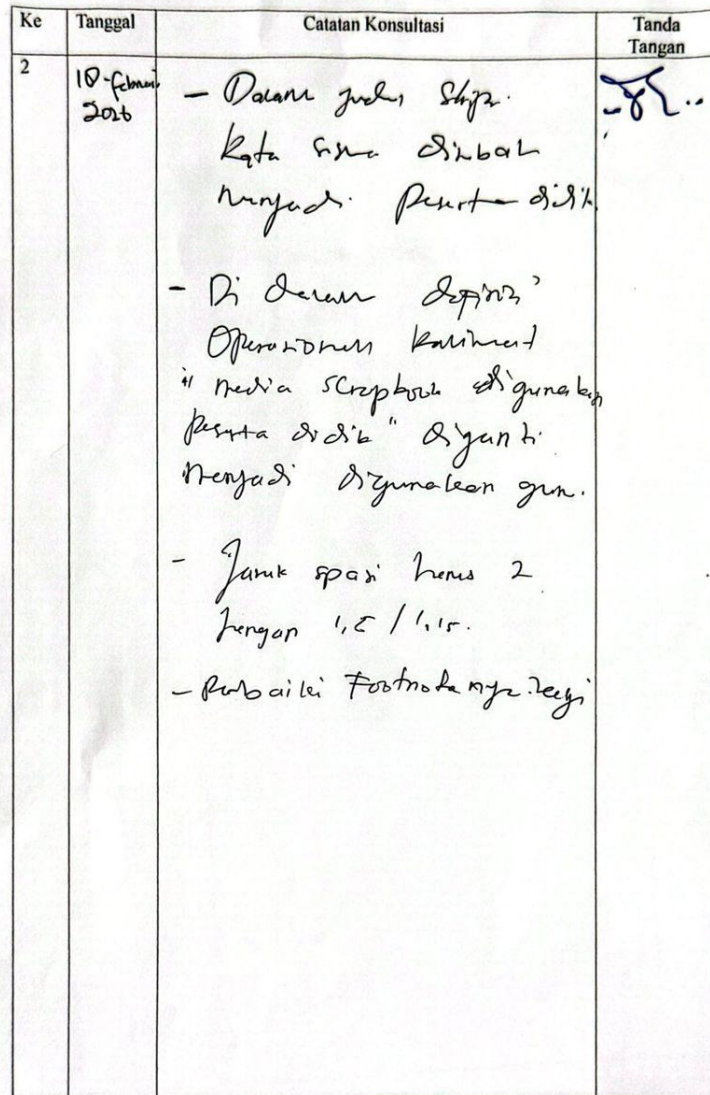 Ke Tanggal Catatan Konsultasi Tanda Tangan
2
10-februari
2026
- Dalam judul Skripsi
Kata siswa diubah
menjadi Peserta didik
- Di dalam definisi
Operasional kalimat
" media scrapbook digunakan
peserta didik " diganti
menjadi digunakan guru.
- Jarak spasi harus 2
Jangan 1,5 / 1,15.
- Perbaiki Footnotenya lagi